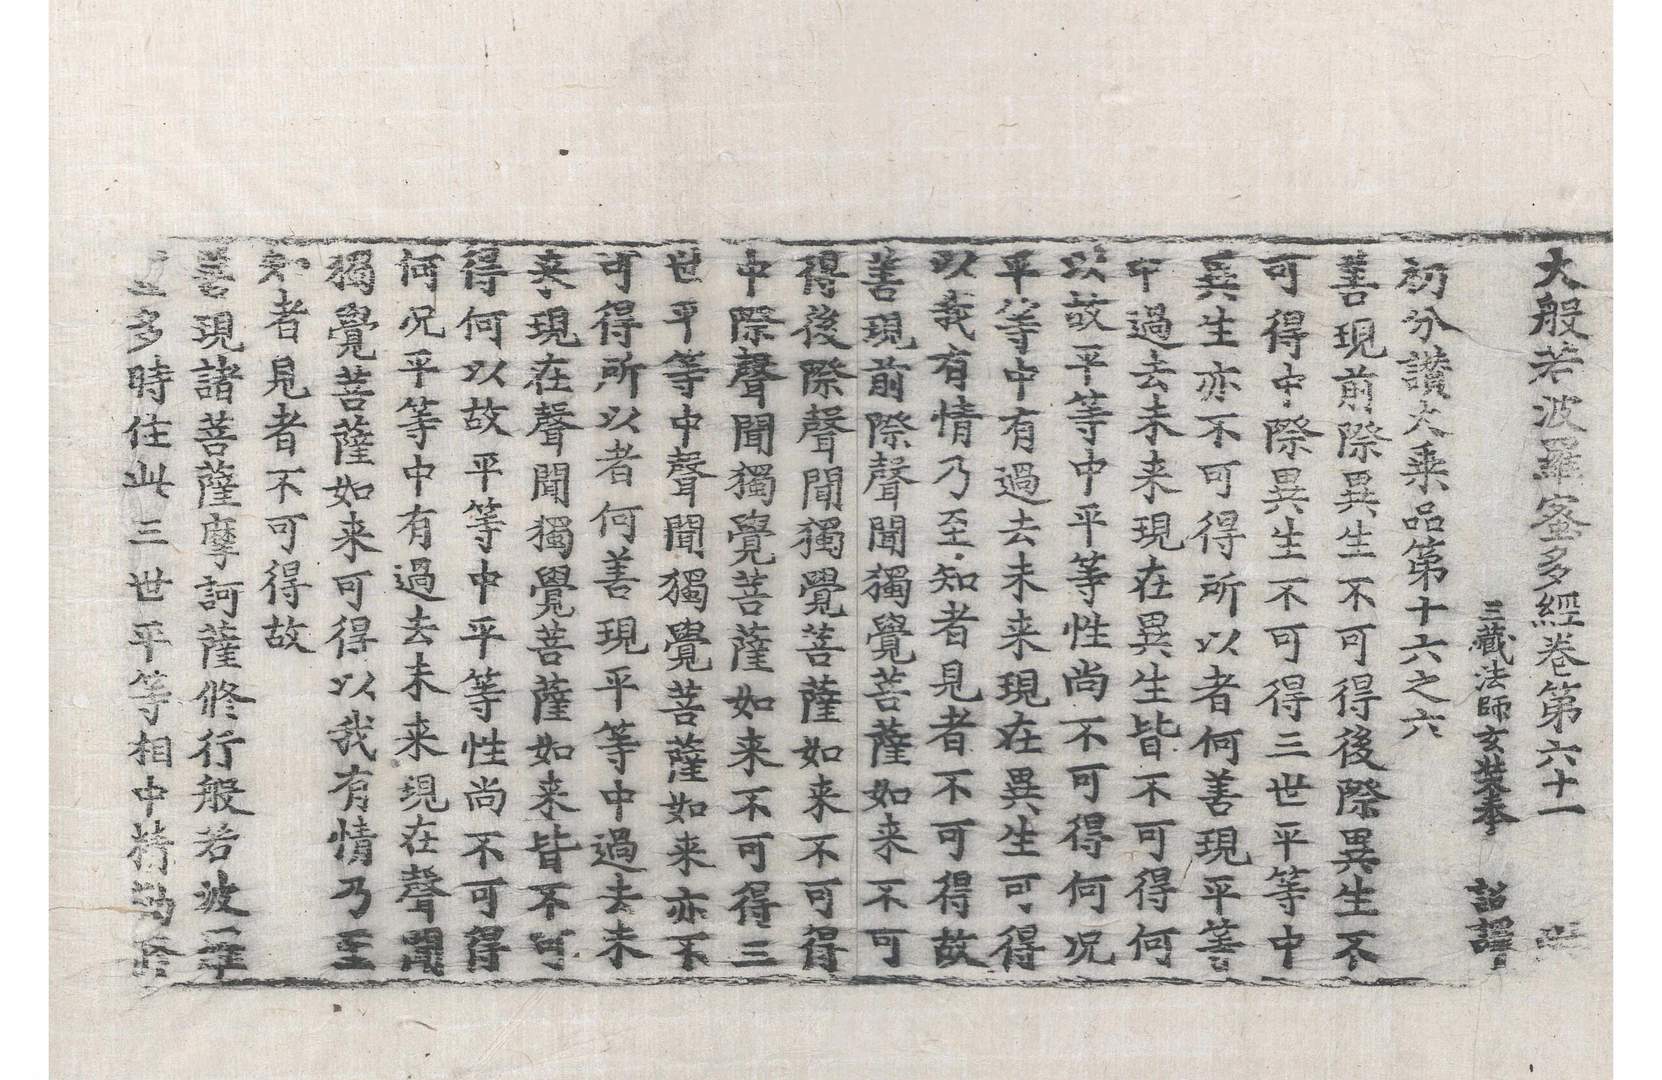 大般若波羅蜜多經卷第六十一
三藏法師玄奘奉 詔譯
初分讃大乘品第十六之六
善現前際異生不可得後際異生不
可得中際異生不可得三世平等中
異生亦不可得所以者何善現平等
中過去未来現在異生皆不可得何
以故平等中平等性尚不可得何况
平等中有過去未来現在異生可得
以我有情乃至知者見者不可得故
善現前際聲聞獨覺菩薩如来不可
得後際聲聞獨覺菩薩如来不可得
中際聲聞獨覺菩薩如来不可得三
世平等中聲聞獨覺菩薩如来亦不
可得所以者何善現平等中過去未
来現在聲聞獨覺菩薩如来皆不可
得何以故平等中平等性尚不可得
何况平等中有過去未来現在聲聞
獨覺菩薩如来可得以我有情乃至
知者見者不可得故
善現諸菩薩摩訶薩修行般若波羅
多時住此三世平等相中精勤